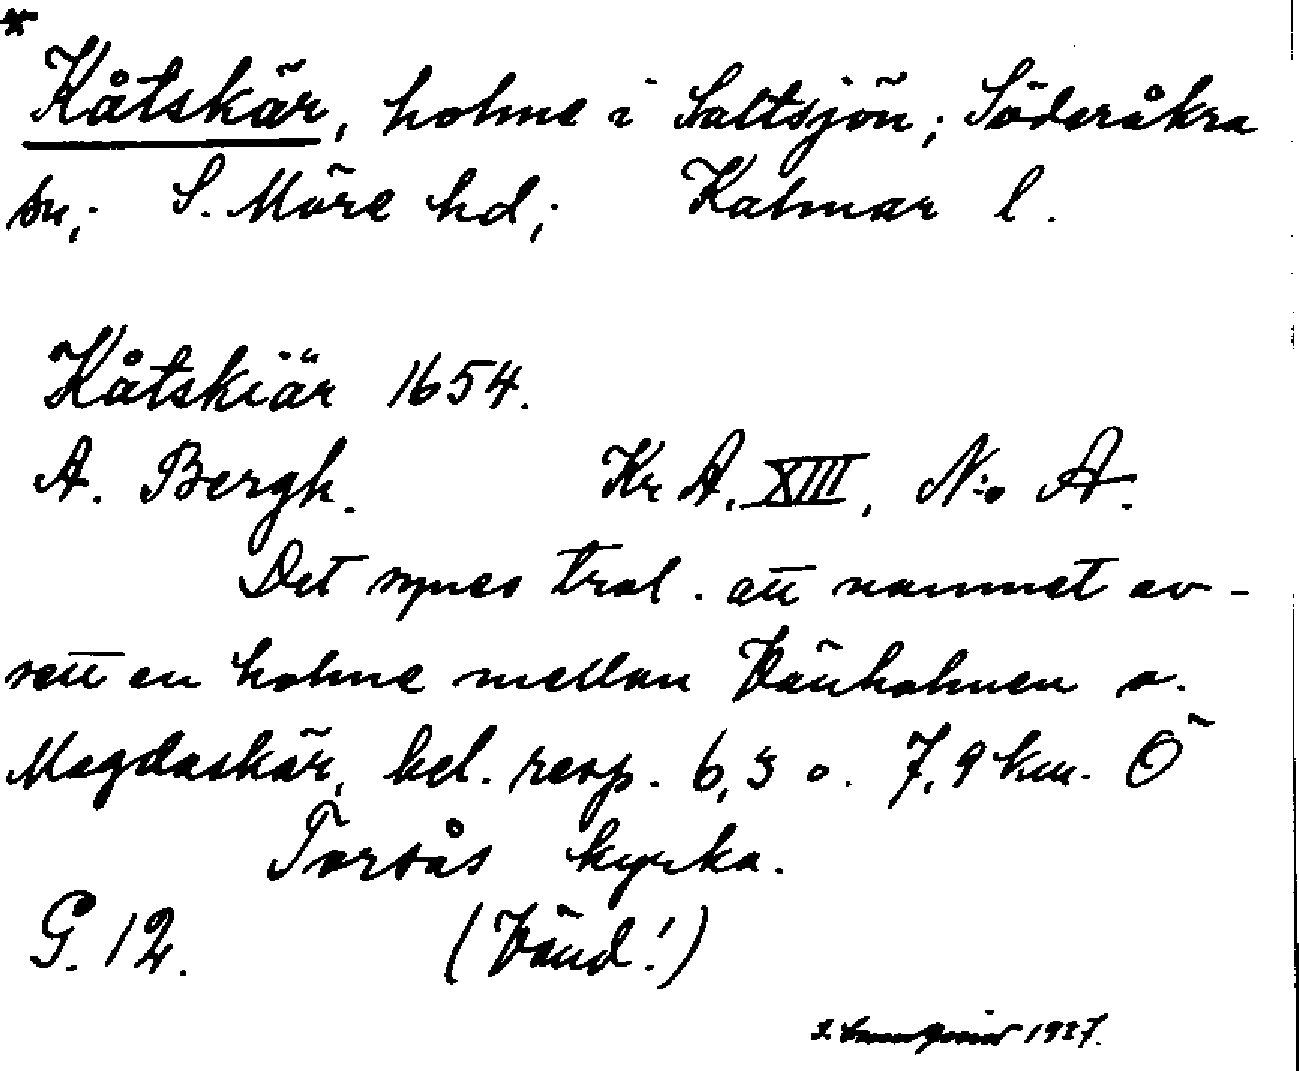 *
Kåtskär, holme i Saltsjön; Söderåkra
sn; S. Möre hd; Kalmar l.
Kåtskiär 1654.
A. Bergh. Kr A. XIII, N:o A.
Det synes trol. att namnet av-
sett en holme mellan Vänholmen o.
Magdaskär, bel. resp. 6,3 o. 7,9 km. Ö
Torsås kyrka.
G. 12. (Vänd!)
1927.